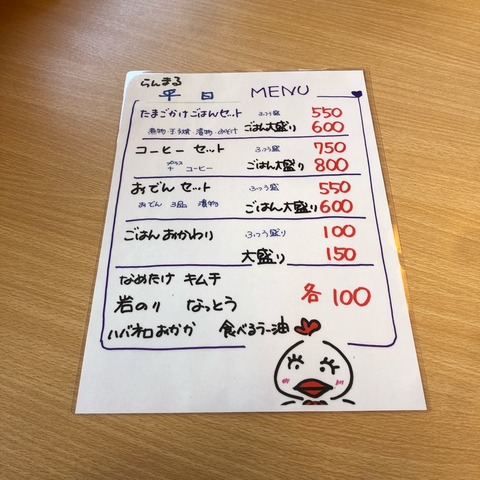 らんまる
平日 MENU
たまごかけごはんセット ふつう盛 550
煮物 玉子焼 漬物 みそ汁 ごはん大盛り 600
コーヒー セット ふつう盛 750
プラス + コーヒー ごはん大盛り 800
おでん セット ふつう盛 550
おでん 3品 漬物 ごはん大盛り 600
ごはんおかわり ふつう盛り 100
大盛り 150
なめたけ キムチ
岩のり なっとう 各 100
ハバネロおかか 食べるラー油